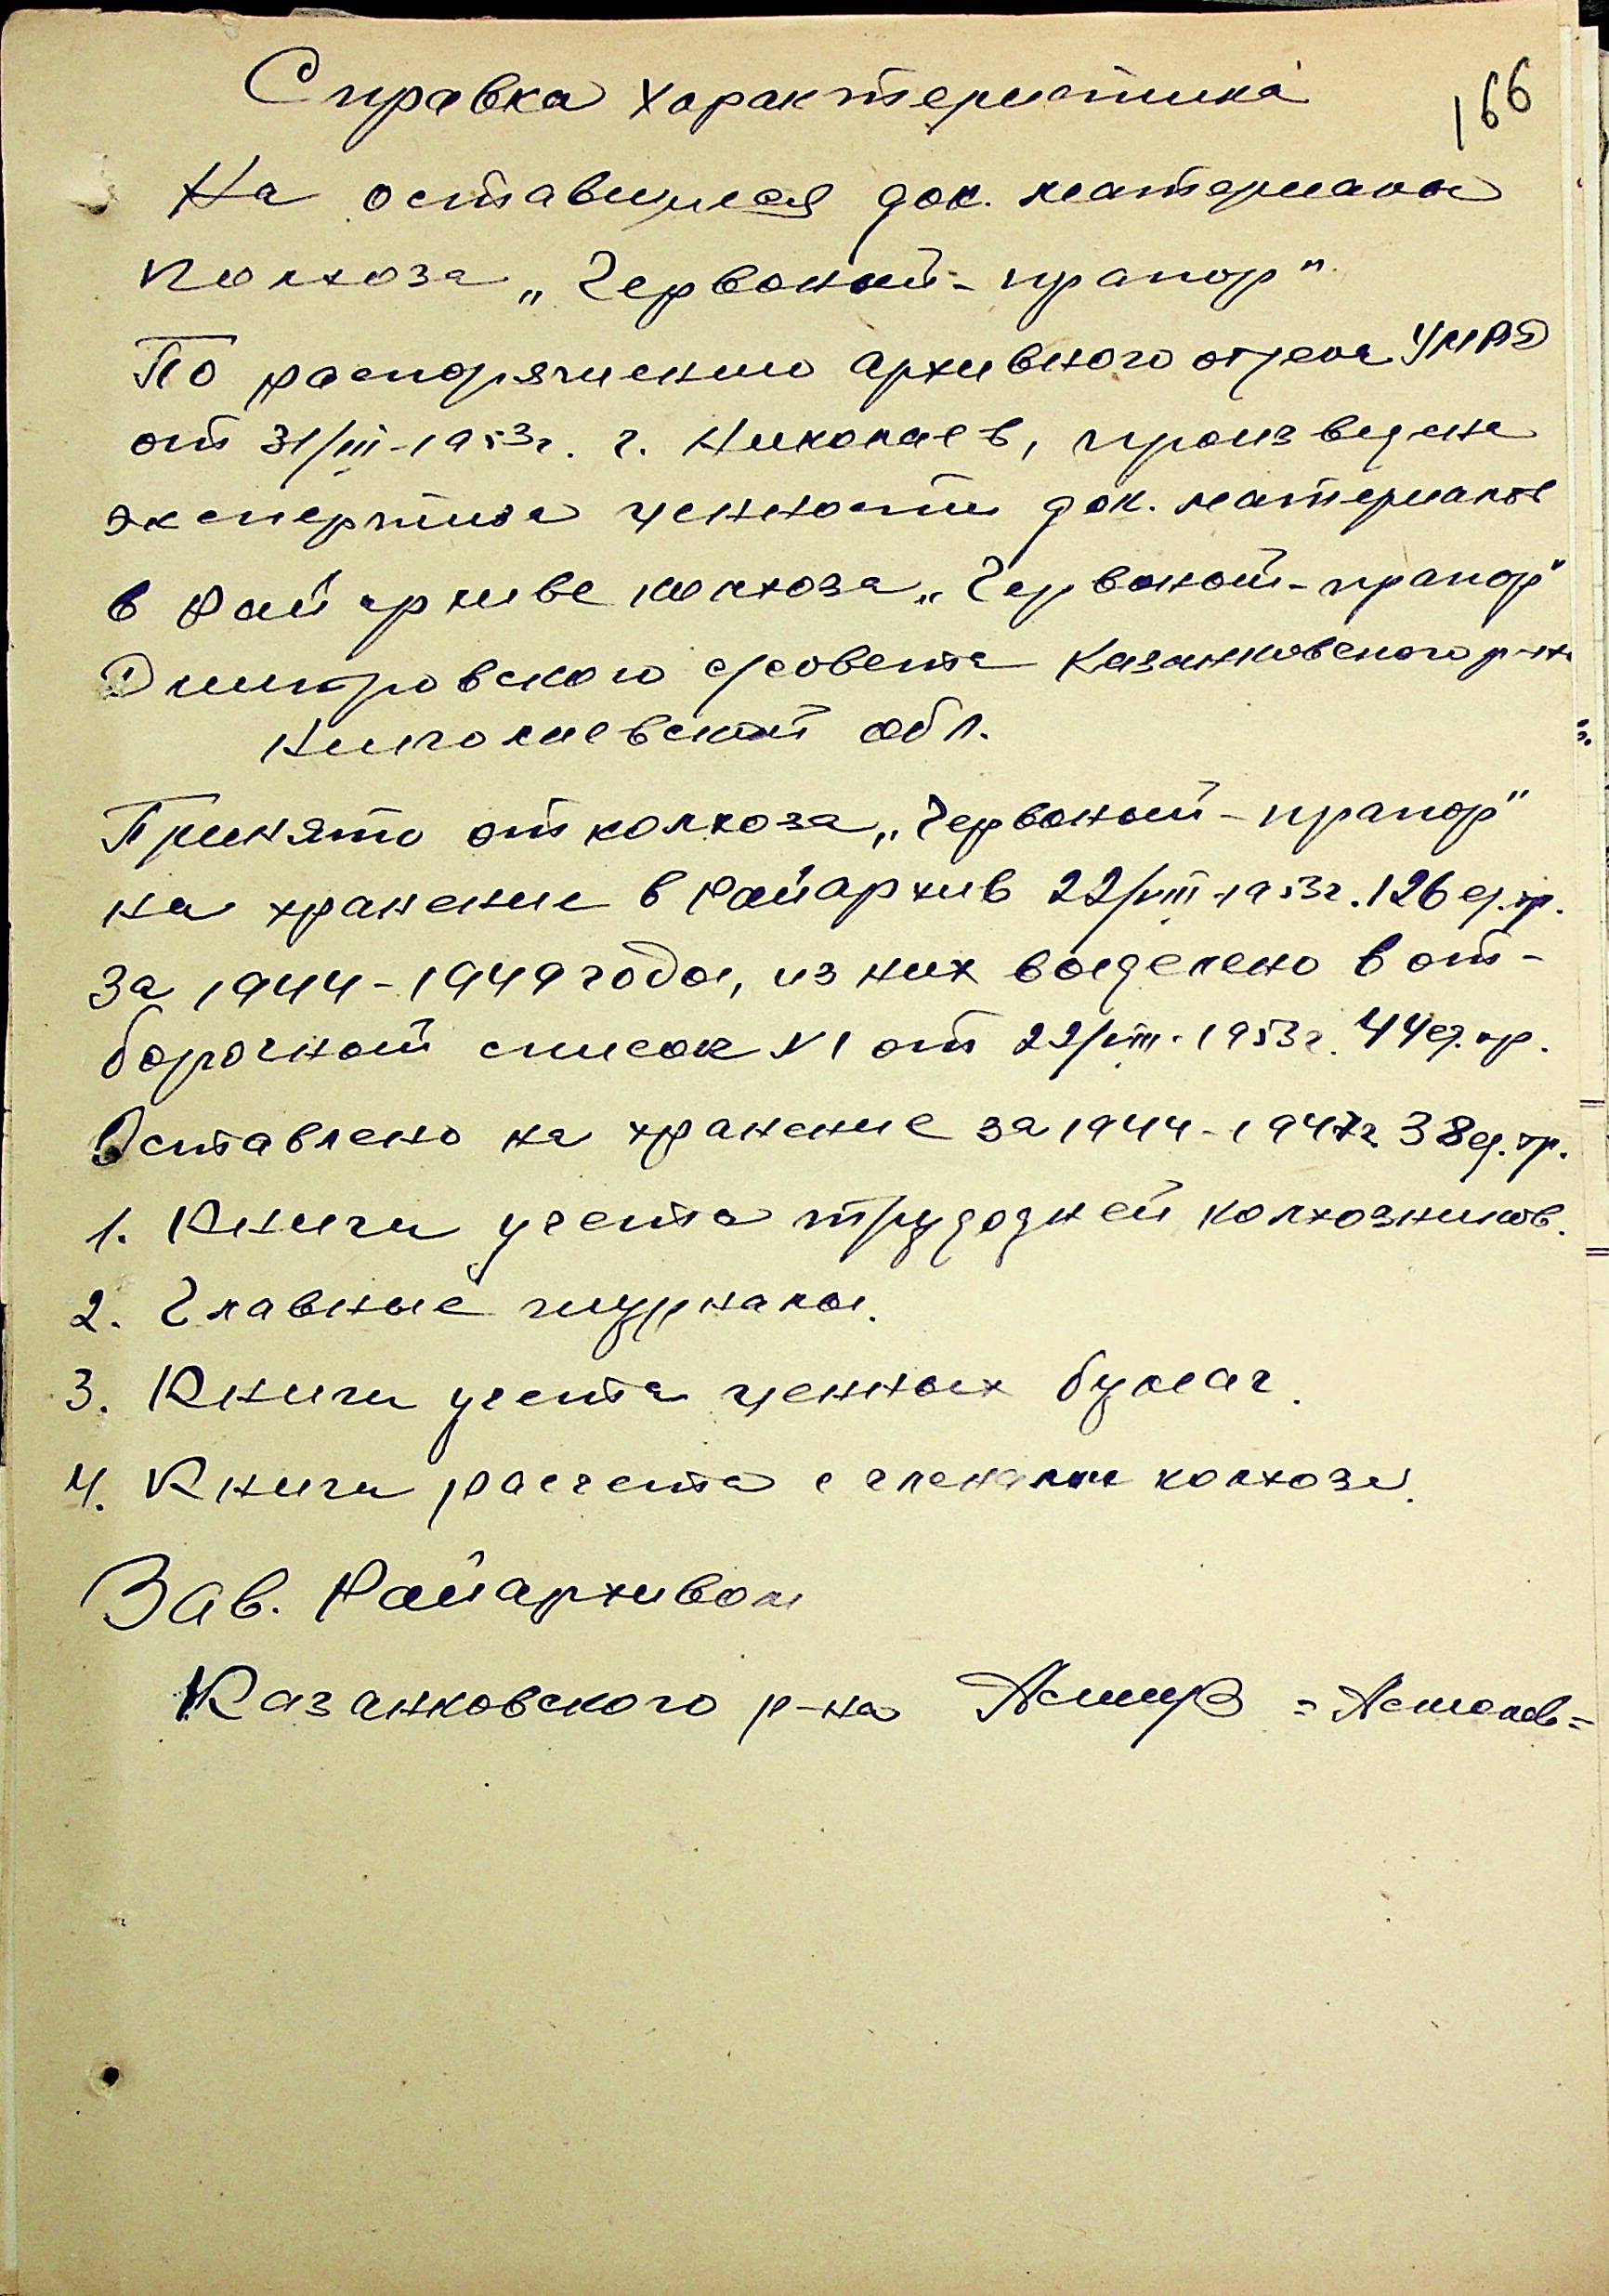 166
Справка характеристика
На оставшиеся док. материалы
колхоза „Червоный-прапор"
По распоряжению архивного отдела УМВД
от 31/III-1953г. г. Николаев, произведена
экспертиза ценности док. материалов
в Райархиве колхоза „Червоный-прапор"
Дмитровского с/совета Казанковского р-на
Николаевской обл.
Принято от колхоза „Червоный-прапор"
на хранение в Райархив 22/VIII-1953г. 126 ед.хр.
за 1944-1949 годы, из них выделено в от-
борочный список №1 от 22/VIII-1953г. 44 ед.хр.
Оставлено на хранение за 1944-1947г 38 ед.хр.
1. Книги учета трудодней колхозников.
2. Главные журналы.
3. Книги учета ценных бумаг.
4. Книги расчета с членами колхоза.
Зав. Райархивом
Казанковского р-на